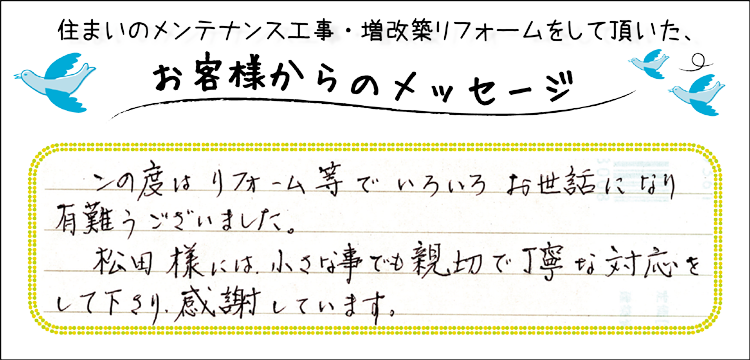 住まいのメンテナンス工事・増改築リフォームをして頂いた、
お客様からのメッセージ
この度は リフォーム等で いろいろ お世話になり
有難うございました。
松田様には、小さな事でも親切で丁寧な対応を
して下さり、感謝しています。